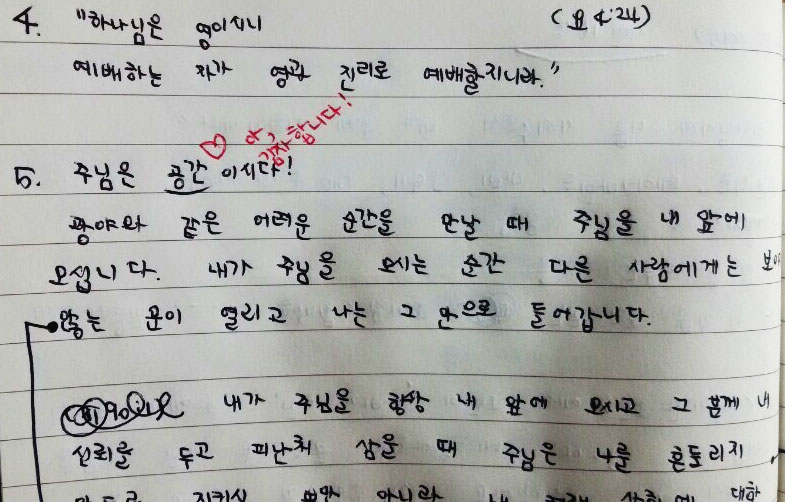 4. "하나님은 영이시니 (요 4:24)
예배하는 자가 영과 진리로 예배할지니라."
♡ 아, 감사합니다!
5. 주님은 공간이시다!
광야와 같은 어려운 순간을 만날 때 주님을 내 앞에
모십니다. 내가 주님을 모시는 순간 다른 사람에게는
않는 문이 열리고 나는 그 안으로 들어갑니다.
내가 주님을 항상 내 앞에 모시고 그 분께 내
신뢰를 두고 피난처 삼을 때 주님은 나를 흔들리지
지키실 뿐만 아니라 대한